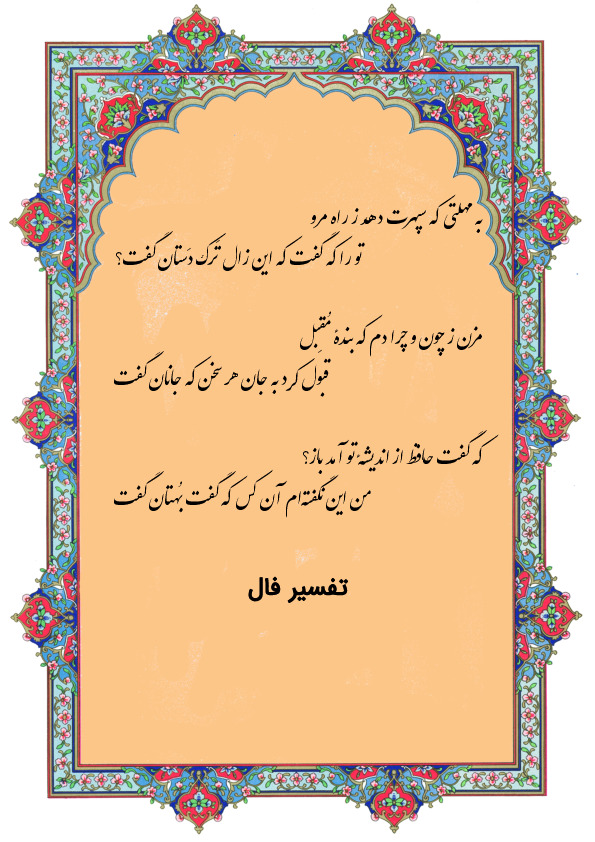 به مهلتی که سپهرت دهد ز راه مرو
تو را که گفت که این زال تَرک دَستان گفت؟
مزن ز چون و چرا دم که بندهٔ مُقبِل
قبول کرد به جان هر سخن که جانان گفت
که گفت حافظ از اندیشهٔ تو آمد باز؟
من این نگفته‌ام آن کس که گفت بُهتان گفت
تفسیر فال